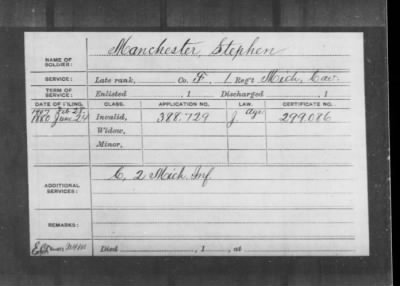 NAME OF SOLDIER: Manchester, Stephen
SERVICE: Late rank, Co. F, 1 Reg't Mich. Cav.
TERM OF SERVICE: Enlisted , 1 Discharged , 1
DATE OF FILING. CLASS. APPLICATION NO. LAW. CERTIFICATE NO.
1907 Feb 28 Age
1880 June 24 Invalid, 388.729 J 299.086
Widow,
Minor,
ADDITIONAL SERVICES: C, 2 Mich. Inf.
REMARKS:
Died , 1 , at